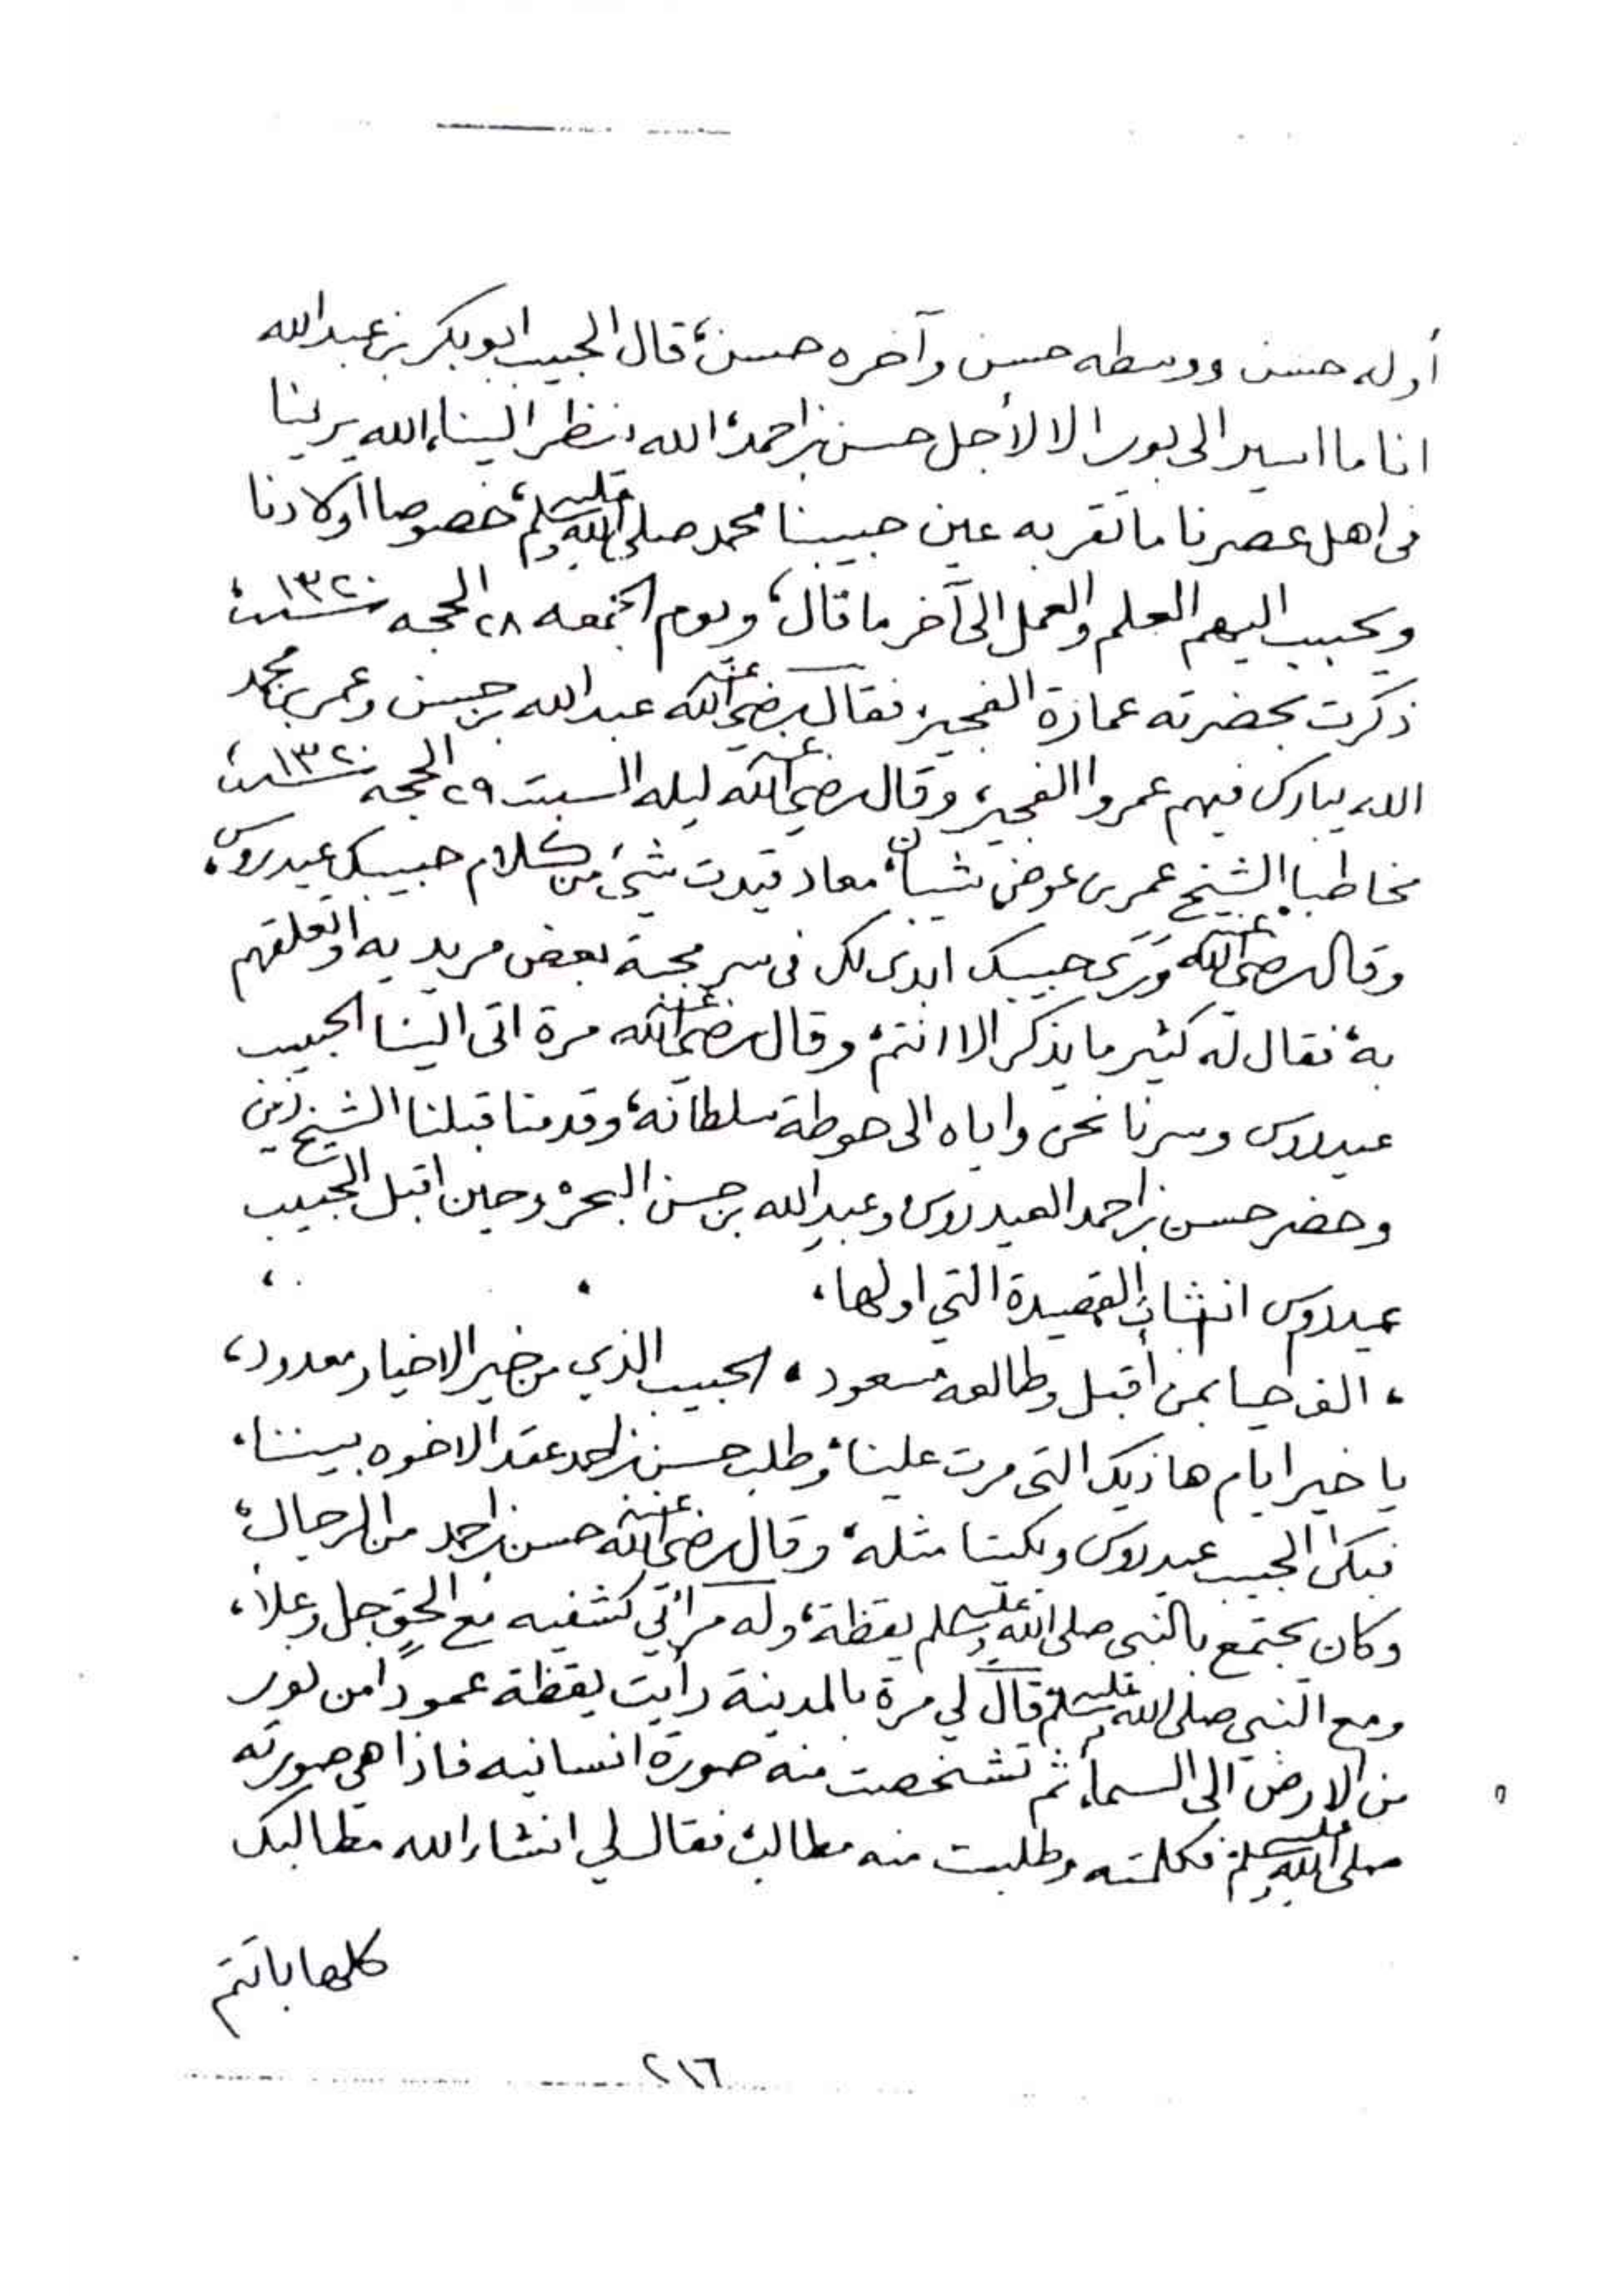 أوله حسن ووسطه حسن وآخره حسن، قال الحبيب ابوبكر بن عبدالله
انا ما اسير الى بور الا لأجل حسن بن احمد، الله ينظر الينا، الله يرينا
فى اهل عصرنا ما تقر به عين حبيبنا محمد صلى الله عليه وسلم، خصوصا اولادنا
ويحبب اليهم العلم والعمل الى آخر ما قال، ويوم الجمعه ٢٨ الحجه سنة ١٣٢٠،
ذكرت بحضرته عمارة الفجير، فقال رضي الله عنه عبدالله بن حسن وعمر بن محمد
الله يبارك فيهم عمروا الفجير، وقال رضي الله عنه ليلة السبت ٢٩ الحجه سنة ١٣٢٠،
مخاطبا الشيخ عمر بن عوض شيبان، معاد قيدت شيء من كلام حبيبك عيدروس،
وقال رضي الله عنه وَرَى حبيبك ابدى لك فى سر محبة بعض مريديه وتعلقهم
به، فقال له كثير ما يذكر الا انتم، وقال رضي الله عنه مرة اتى الينا الحبيب
عيدروس وسرنا نحن واياه الى حوطة سلطانه، وقدمنا قبلنا الشيخ زين
وحضر حسن بن احمد العيدروس وعبدالله بن حسن البحر، وحين اقبل الحبيب
عيدروس انشأت القصيدة التي اولها،
، الف حيا بمن أقبل وطالعه مسعود ، الحبيب الذي من خير الاخيار معدود،
يا خير ايام هاذيك التى مرت علينا، وطلب حسن بن احمد عقد الاخوه بيننا،
فبكى الحبيب عيدروس وبكينا مثله، وقال رضي الله عنه حسن بن احمد من الرجال،
وكان يجتمع بالنبى صلى الله عليه وسلم يقظة، وله مرائي كشفيه مع الحق جل وعلا،
ومع النبي صلى الله عليه وسلم قال لي مرة بالمدينة رأيت يقظة عمودا من نور
من الارض الى السماء، ثم تشخصت منه صورة انسانيه فاذا هي صورته
صلى الله عليه وسلم فكلمته وطلبت منه مطالب، فقال لي انشاء الله مطالبك
كلها باتتم
٢١٦